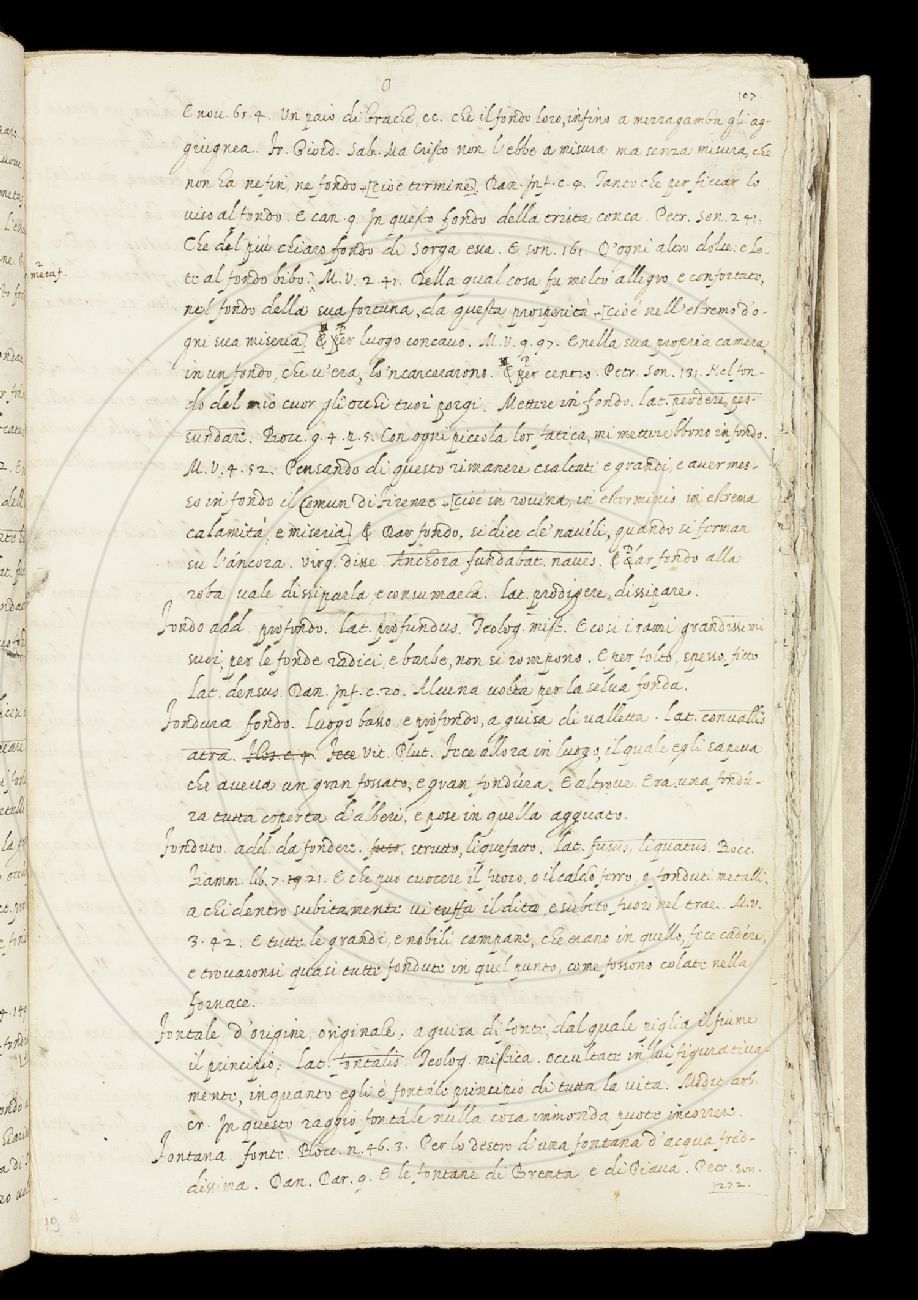 O
107
E nov. 65. 4. Un paio di brache, ec. che il fondo loro, infino a mezza gamba gli ag-
giugnea. Fr. Giord. Salv. Ma Cristo non l'ebbe a misura ma senza misura, che
non ha ne fin, ne fondo [cioè termine] Dan. Inf. c. 4. Tanto che per ficcar lo
viso al fondo. E can. 9. In questo fondo della trista conca. Petr. Son. 241.
Che del più chiaro fondo di Sorga esca. E son. 161. D'ogni altro dolce: e Le-
te al fondo bibo. M. V. 2. 41. Della qual cosa fu molto allegro e confortato,
nel fondo della sua fortuna, da questa prosperità [cioè nell'estremo d'o-
gni sua miseria] E per luogo concavo. M. V. 9. 97. E nella sua propria camera,
in un fondo, che v'era, lo'ncarcerarono. E per centro. Petr. Son. 131. Nel fon-
do del mio cuor gli occhi tuoi porgi. Mettere in fondo. lat. perdere, pes-
sundare. Bocc. g. 4. p. 5. Con ogni piccola lor fatica, mi metterebbono in fondo.
M. V. 4. 52. Pensando di questo rimanere esaltati e grandi, e aver mes-
so in fondo il Comun di Firenze [cioè in rovina, in esterminio in estrema
calamità, e miseria] E Dar fondo, si dice de' navili, quando si ferman
su l'áncora. Virg. disse Anchora fundabat naves. E Dar fondo alla
roba vale dissiparla, e consumarla. lat. prodigere, dissipare.
Fondo add. profondo. lat. profundus. Teolog. mist. E così i rami grandissimi
suoi, per le fonde radici, e barbe, non si rompono. E per folto, spesso, fitto
lat. densus. Dan. Inf. c. 20. Alcuna volta per la selva fonda.
Fondura fondo. Luogo basso, e profondo, a guisa di valletta. Lat. convallis
atra. Vit. Plut. Fece allora in luogo, il quale egli sapeva
che aveva un gran fossato, e gran fondúra. E altrove. Era una fondú-
ra tutta coperta d'alberi, e pose in quella agguato.
Fonduto. add. da fondere. fuso. strutto, liquefatto. Lat. fusus, liquatus. Bocc.
Fiamm. lib. 7. 21. E che può cuocere il fuoco, o il caldo ferro, o fonduti metalli,
a chi dentro subitamente vi tuffa il dito, e subito fuori nel trae. M. V.
3. 42. E tutte le grandi, e nobili campane, che erano in quello, fece cadére,
e trovaronsi quasi tutte fondute in quel punto, come fossono colate nella
fornace.
Fontale d'origine, originale; a guisa di fonte, dal quale piglia il fiume
il principio; Lat. fontalis. Teolog. mistica. occultate in lui figurativa-
mente, in quanto egli è fontale principio di tutta la vita. Medit. arb.
cr. In questo raggio fontale nulla cosa immonda puote incorrere.
Fontana fonte. Bocc. n. 46. 3. Per lo destro d'una fontana d'acqua fred-
dissima. Dan. Par. 9. E le fontane di Brenta, e di Piava. Petr. son.
metaf.